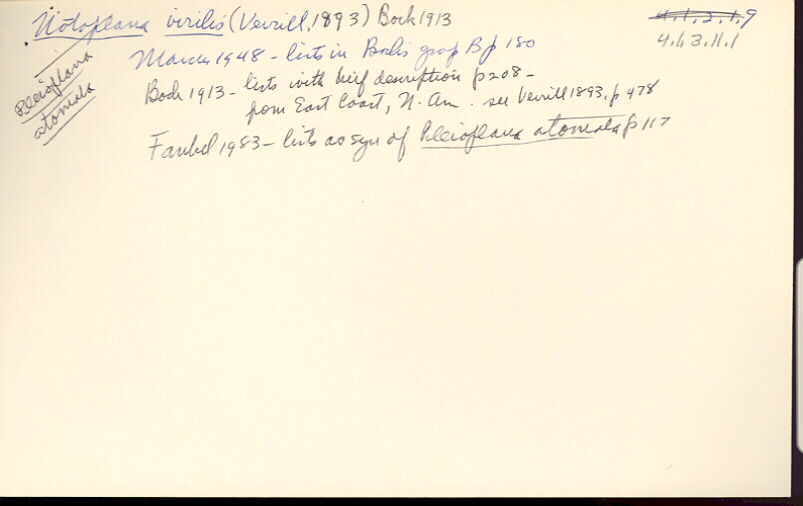 Notoplana virilis (Verrill, 1893) Bock 1913
4.1.2.1.9
4.1.3.11.1
Pleioplana
atomata
Marcus 1948 - lists in Bock's group B p 180
Bock 1913 - lists with brief description p 208 -
from East Coast, N. Am. see Verrill 1893, p 478
Faubel 1983 - lists as syn of Pleioplana atomata p 117